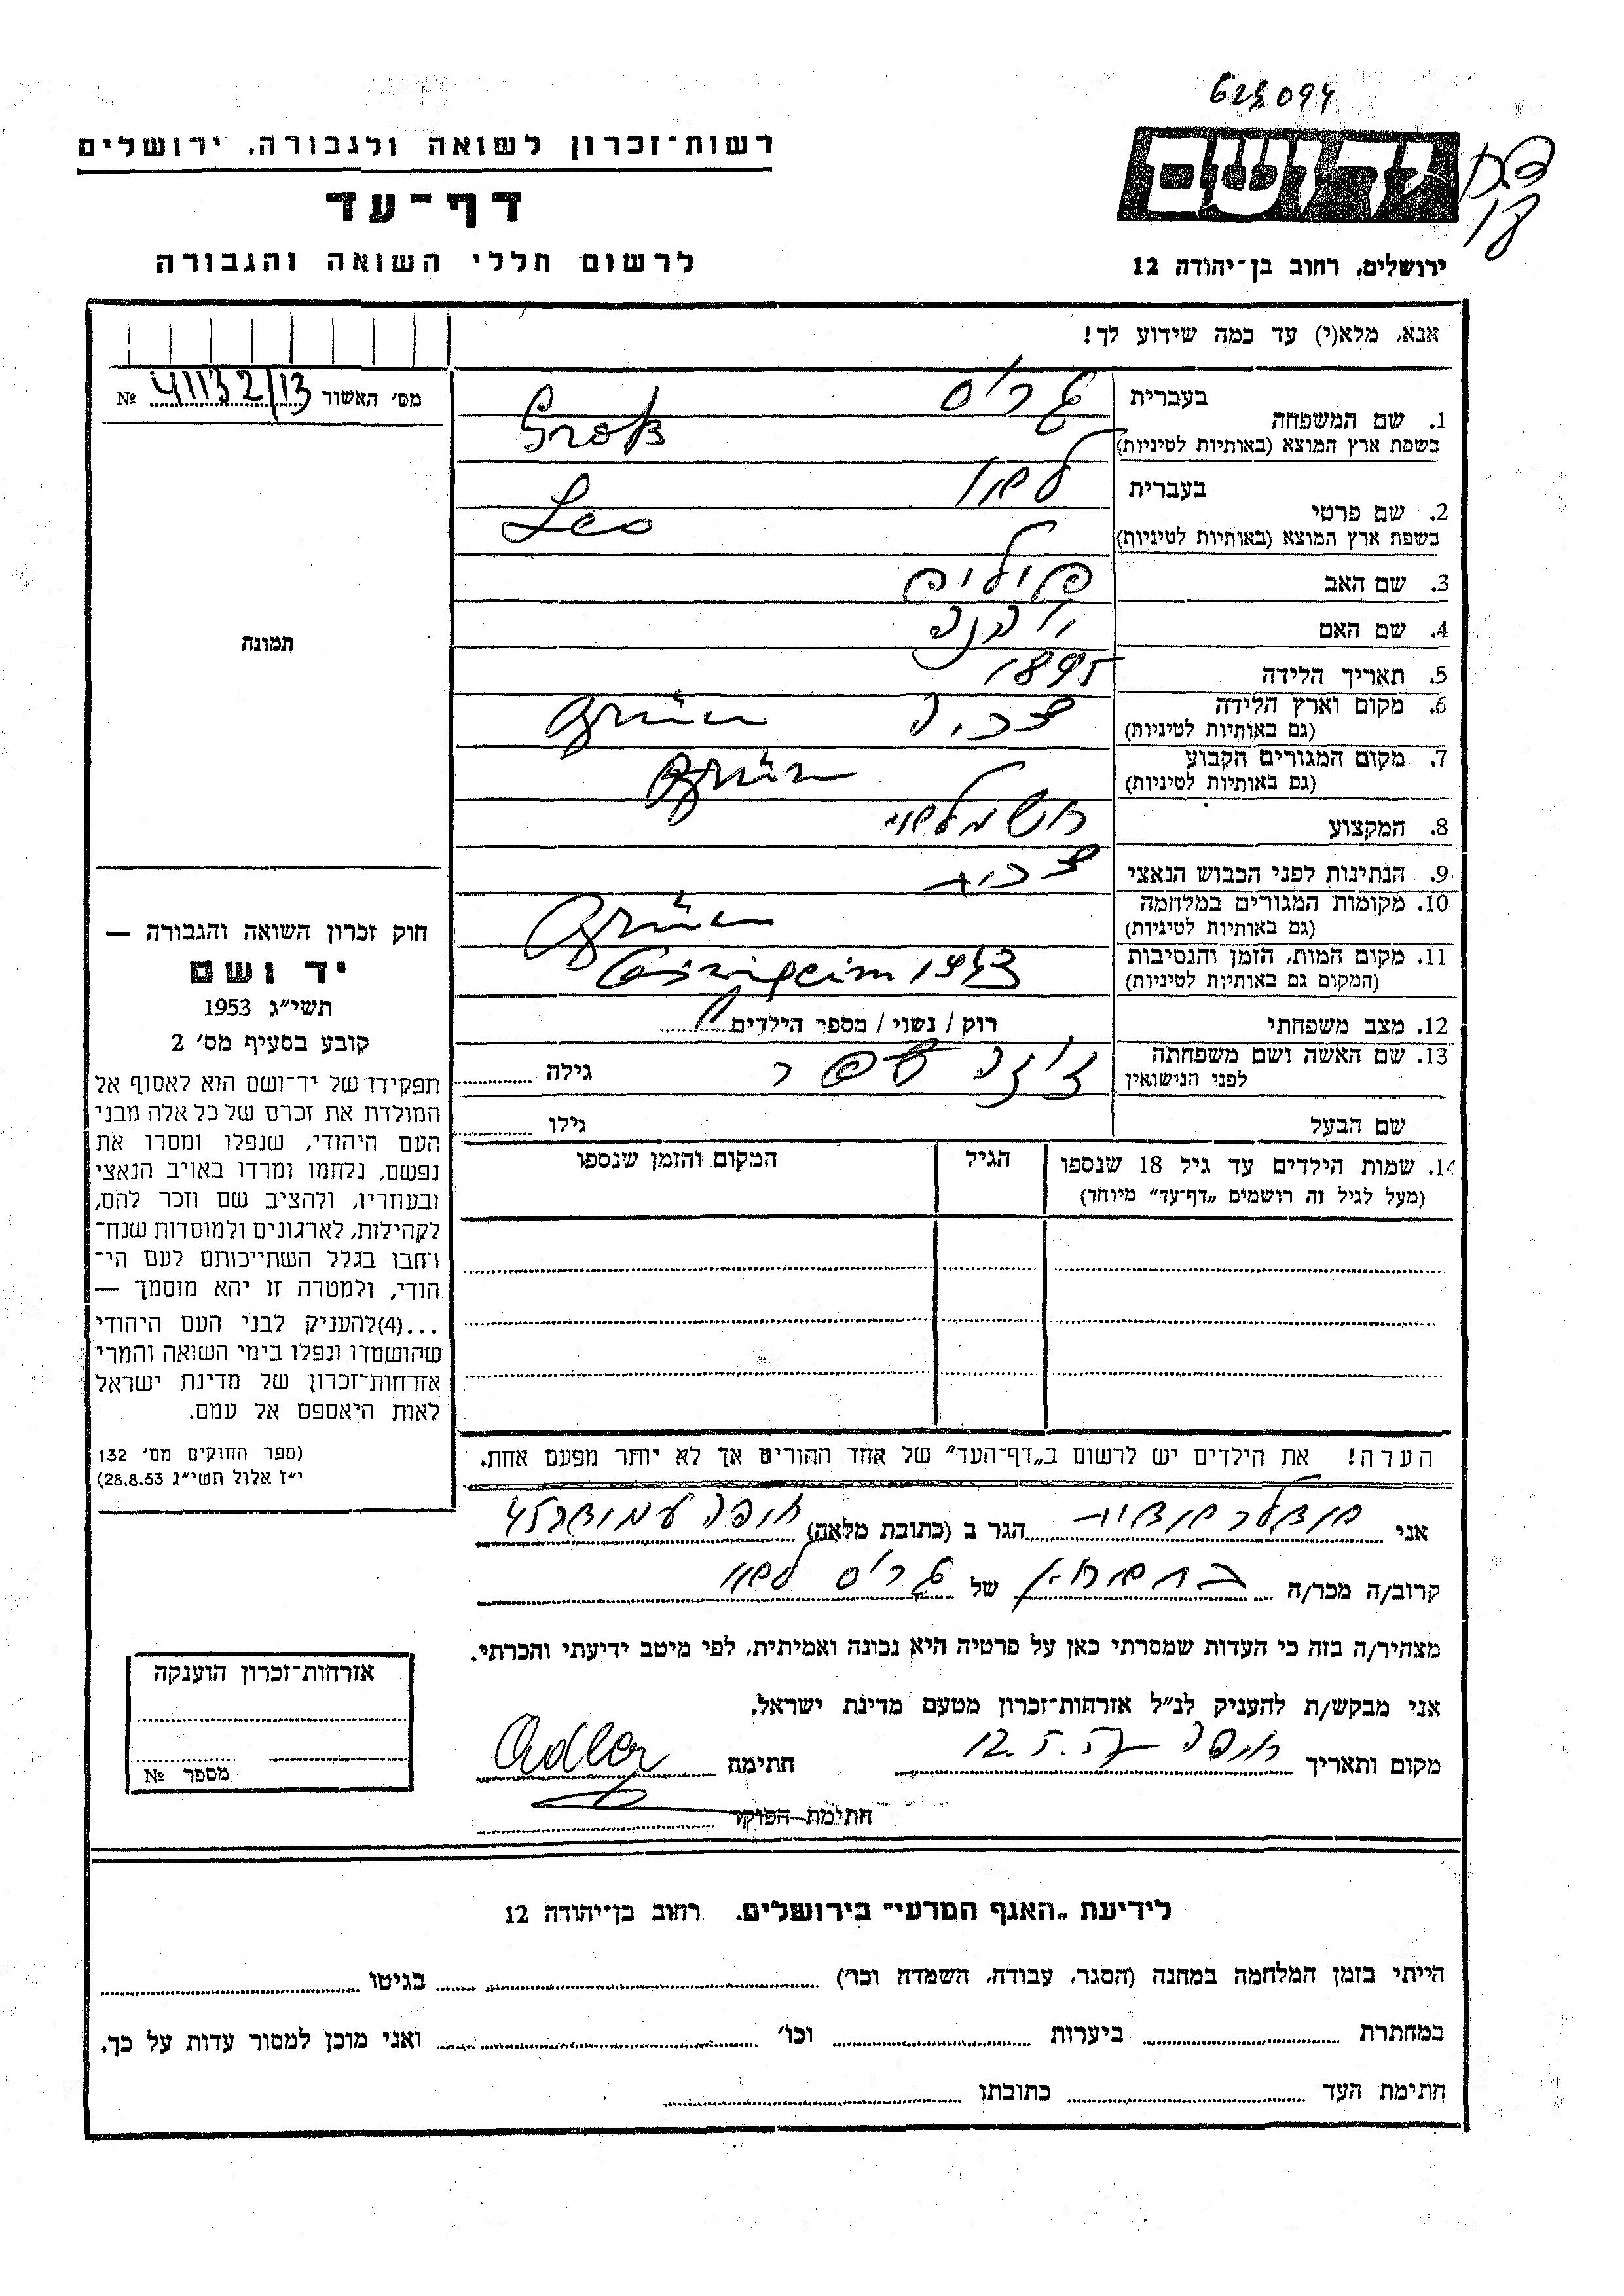 623094
רשות־זכרון לשואה ולגבורה, ירושלים
דף־עד
לרשום חללי השואה והגבורה
יד ושם
ירושלים, רחוב בן־יהודה 12
אנא, מלא(י) עד כמה שידוע לך!
מס׳ האשור 41132/13 №
1. שם המשפחה
בעברית גרוס
בשפת ארץ המוצא (באותיות לטיניות) Groß
2. שם פרטי
בעברית לאו
בשפת ארץ המוצא (באותיות לטיניות) Leo
3. שם האב
4. שם האם
5. תאריך הלידה 1895
6. מקום וארץ הלידה
(גם באותיות לטיניות) צכיה Brünn
7. מקום המגורים הקבוע
(גם באותיות לטיניות) Brünn
8. המקצוע חשמלאי
9. הנתינות לפני הכבוש הנאצי צכית
10. מקומות המגורים במלחמה
(גם באותיות לטיניות) Brünn
11. מקום המות, הזמן והנסיבות
(המקום גם באותיות לטיניות) 1943
12. מצב משפחתי רוק / נשוי / מספר הילדים
13. שם האשה ושם משפחתה
לפני הנישואין גילה
שם הבעל גילו
14. שמות הילדים עד גיל 18 שנספו
(מעל לגיל זה רושמים „דף־עד״ מיוחד)
הגיל
המקום והזמן שנספו
תמונה
חוק זכרון השואה והגבורה —
יד ושם
תשי״ג 1953
קובע בסעיף מס׳ 2
תפקידו של יד־ושם הוא לאסוף אל
המולדת את זכרם של כל אלה מבני
העם היהודי, שנפלו ומסרו את
נפשם, נלחמו ומרדו באויב הנאצי
ובעוזריו, ולהציב שם וזכר להם,
לקהילות, לארגונים ולמוסדות שנח־
רבו בגלל השתייכותם לעם הי־
הודי, ולמטרה זו יהא מוסמך —
...(4)להעניק לבני העם היהודי
שהושמדו ונפלו בימי השואה והמרי
אזרחות־זכרון של מדינת ישראל
לאות היאספם אל עמם.
(ספר החוקים מס׳ 132
י״ז אלול תשי״ג 28.8.53)
הערה! את הילדים יש לרשום ב„דף־העד״ של אחד ההורים אך לא יותר מפעם אחת.
אני אדלר הגר ב (כתובת מלאה) חיפה
קרוב/ה מכר/ה של גרוס לאו
מצהיר/ה בזה כי העדות שמסרתי כאן על פרטיה היא נכונה ואמיתית, לפי מיטב ידיעתי והכרתי.
אני מבקש/ת להעניק לנ״ל אזרחות־זכרון מטעם מדינת ישראל.
מקום ותאריך חיפה 12.5. חתימה Adler
חתימת הפוקד
אזרחות־זכרון הוענקה
מספר №
לידיעת „האגף המדעי״ בירושלים, רחוב בן־יהודה 12
הייתי בזמן המלחמה במחנה (הסגר, עבודה, השמדה וכו׳) בגיטו
במחתרת ביערות וכו׳ ואני מוכן למסור עדות על כך.
חתימת העד כתובתו